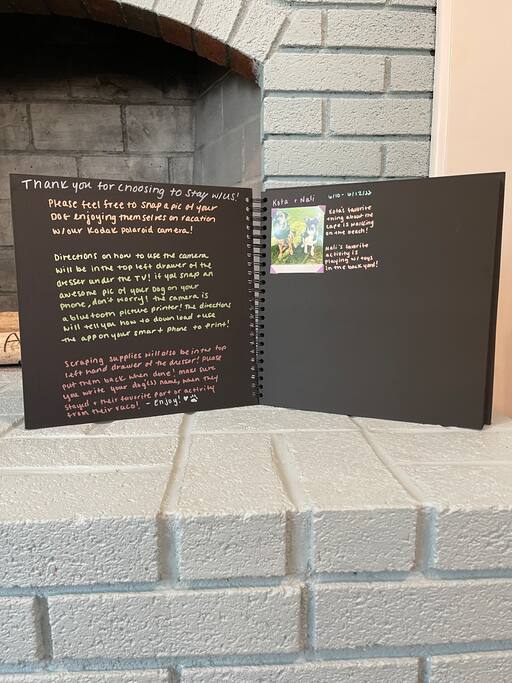 Thank you for choosing to stay w/us!
Please feel free to snap a pic of your
Dog enjoying themselves on vacation
w/our Kodak Polaroid camera!
Directions on how to use the camera
will be in the top left drawer of the
dresser under the TV! if you snap an
awesome pic of your Dog on your
phone, don't worry! the camera is
a bluetooth picture printer! The directions
will tell you how to download + use
the app on your smart phone to print!
Scraping supplies will also be in the top
left hand drawer of the dresser! Please
put them back when done! make sure
you write your dog(s) name, when they
stayed + their favorite part or activity
from their vaca! - Enjoy!
Kota + Nali
6/10 - 6/12/22
Kota's favorite
thing about the
cape is walking
on the beach!
Nali's favorite
activity is
playing w/ toys
in the back yard!